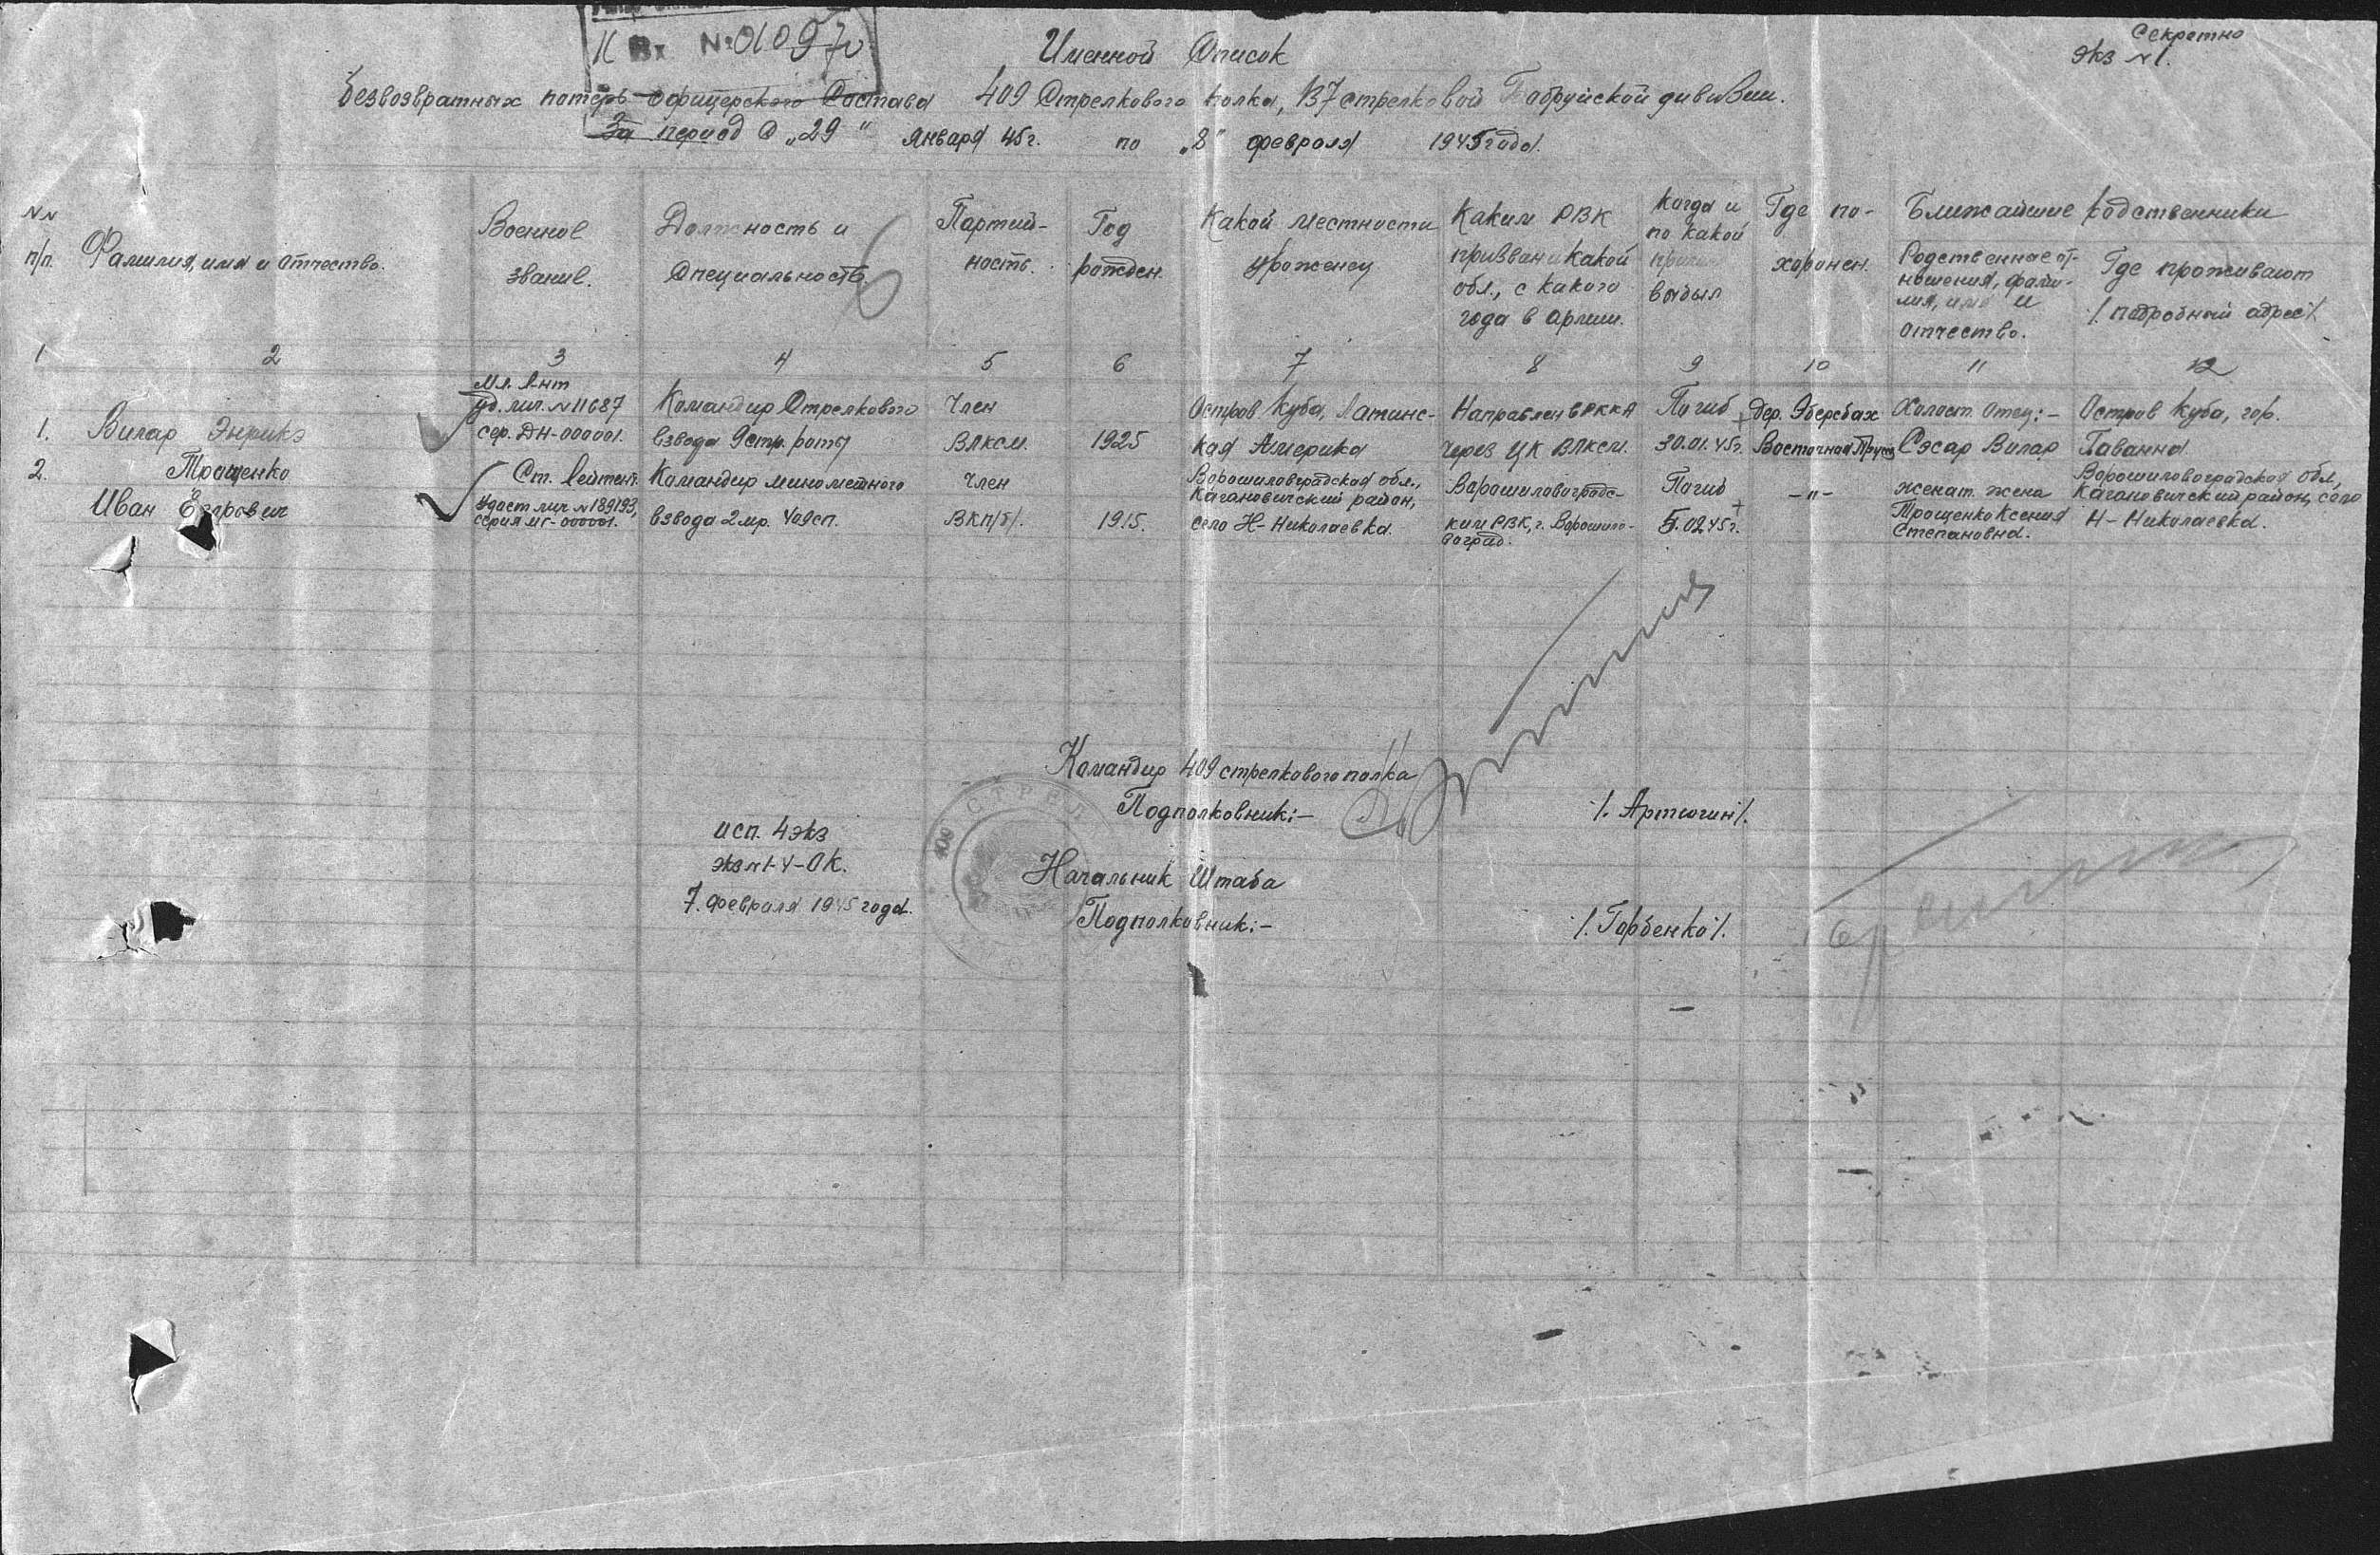 Секретно
экз №1.
Вх №01097
Именной Список
безвозвратных потерь офицерского Состава 409 Стрелкового полка, 137 стрелковой Бобруйской дивизии.
За период с „29“ января 45г. по „8“ февраля 1945 года.
№№ п/п.
Фамилия, имя и отчество.
Военное
звание.
Должность и
Специальность.
Партий-
ность.
Год
рожден.
Какой местности
уроженец
Каким РВК
призван и какой
обл., с какого
года в армии.
Когда и
по какой
причи
выбыл
Где по-
хоронен.
Ближайшие родственники
Родственное от-
ношения, фами-
лия, имя и
отчество.
Где проживают
/. подробный адрес/.
1 2 3 4 5 6 7 8 9 10 11 12
1.
Вилар Энрикэ
Мл. л-нт
уд. лич. №11687
сер. ДН-000001.
Командир Стрелкового
взвода 9 стр. роты
Член
ВЛКСМ.
1925
Остров Куба, Латинс-
кая Америка
Направлен в РККА
через ЦК ВЛКСМ.
Погиб
30.01.45г.
дер. Эберсбах
Восточная Прусс
Холост. Отец:-
Сэсар Вилар
Остров Куба, гор.
Гаванна
2.
Трощенко
Иван Егорович
Ст. лейтент.
удост лич №189193,
серия МГ-000001.
Командир минометного
взвода 2 мр. 409сп.
Член
ВКП/б/.
1915.
Ворошиловградская обл.,
Кагановичский район,
село Н-Николаевка.
Ворошиловоградс-
ким РВК, г. Ворошило-
воград.
Погиб
5.02.45г.
-"-
женат. жена
Трощенко Ксения
Степановна.
Ворошиловоградская обл,
Кагановичский район, село
Н-Николаевка.
Командир 409 стрелкового полка
Подполковник:-
/. Артюгин/.
СТРЕЛ
исп. 4 экз
экз №1-У-ОК.
7. февраля 1945 года.
Начальник Штаба
Подполковник:-
/. Горбенко/.